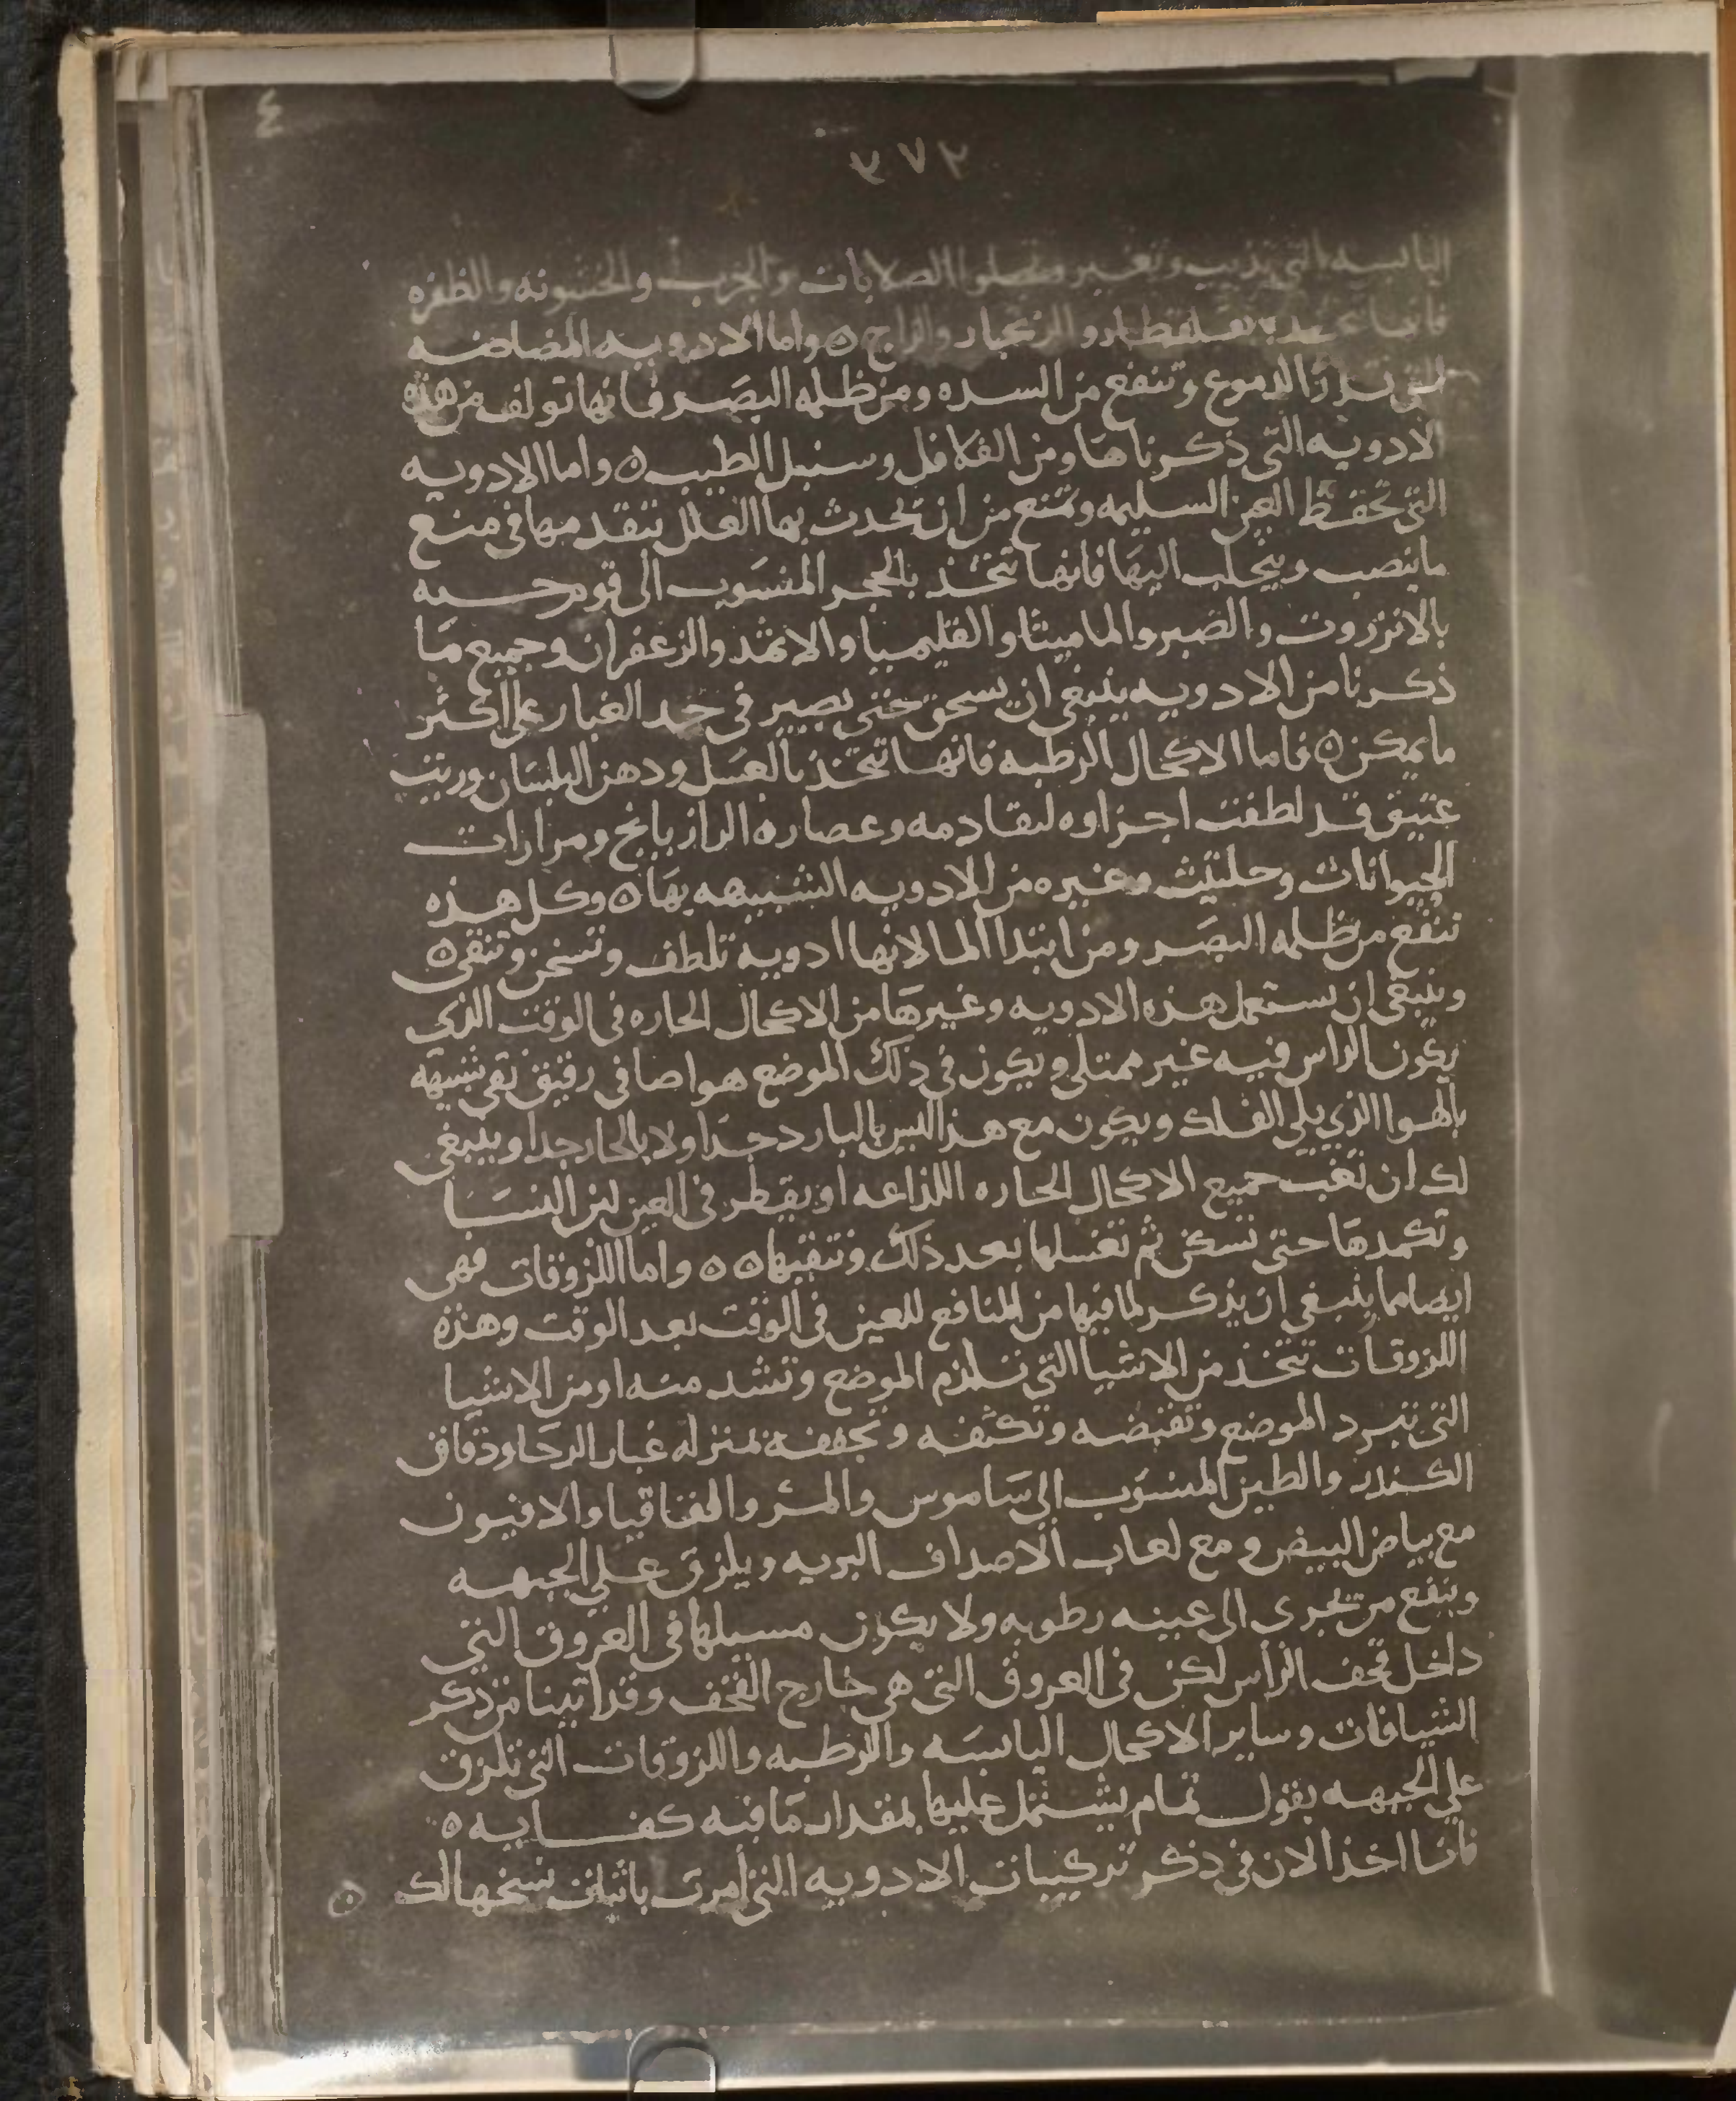 ٤
٣٧٢
اليابسه التي تذيب وتغير وتجلوا الصلابات والجرب والخشونه والظفره
فانها بقلقطار والزنجار والزاج ه واما الادويه المضاضه
التي تدر الدموع وتنفع من السده ومن ظلمه البصر فانها تولف من هذه
الادويه التي ذكرناها ومن الفلافل وسنبل الطيب ه واما الادويه
التي تحفظ العين السليمه وتمنع من ان تحدث بها العلل بتقدمها في منع
ما ينصب ويتحلب اليها فانها تتخذ بالحجر المنسوب الى
بالانزروت والصبر والماميثا والقليميا والاثمد والزعفران وجميع ما
ذكرنا من الادويه ينبغي ان يسحق حتى يصير في حد الغبار على اكثر
ما يمكن ه فاما الاكحال الرطبه فانها تتخذ بالعسل ودهن البلسان وزيت
عتيق قد لطفت اجزاوه لتقادمه وعصاره الرازيانج ومرارات
الحيوانات وحلتيث وغيره من الادويه الشبيهه بها ه وكل هذه
تنفع من ظلمه البصر ومن ابتدا الما لانها ادويه تلطف وتسخن وتنقي ه
وينبغي ان تستعمل هذه الادويه وغيرها من الاكحال الحاره في الوقت الذي
يكون الراس فيه غير ممتلي ويكون في ذلك الموضع هوا صافي رقيق نقي شبيه
بالهوا الذي يلي الفلك ويكون مع هذا ليس بالبارد جدا ولا بالحار جدا وينبغي
لك ان تغب جميع الاكحال الحاره اللذاعه او يقطر في العين لبن النسا
وتكمدها حتى تسكن ثم تغسلها بعد ذلك وتنقيها ه ه واما اللزوقات فهي
ايضا مما ينبغي ان يذكر لما فيها من المنافع للعين في الوقت بعد الوقت وهذه
اللزوقات تتخذ من الاشيا التي تلزم الموضع وتشد منه او من الاشيا
التي تبرد الموضع وتقبضه وتكثفه وتجففه بمنزله غبار الرحا ودقاق
الكندر والطين المنسوب الى ساموس والمر والقاقيا والافيون
مع بياض البيض ومع لعاب الاصداف البريه ويلزق على الجبهه
وينفع من تجرى الى عينيه رطوبه ولا يكون مسيلها في العروق التي
داخل قحف الراس لكن في العروق التي هي خارج القحف وقد اتينا من ذكر
الشيافات وساير الاكحال اليابسه والرطبه واللزوقات التي تلزق
على الجبهه بقول تمام يشتمل عليها بمقدار ما فيه كفايه ه
فانا اخذ الان في ذكر تركيبات الادويه التي امرت باثبات نسخها لك